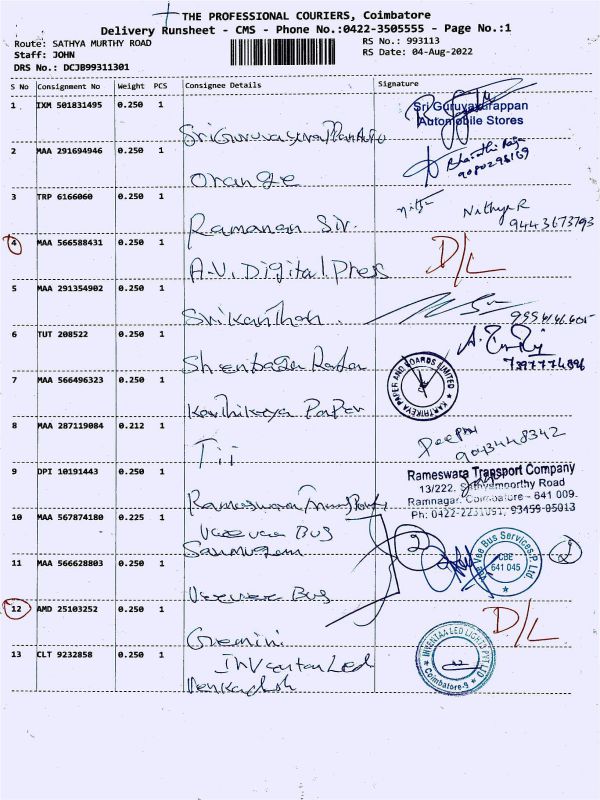 THE PROFESSIONAL COURIERS, Coimbatore
Delivery Runsheet - CMS - Phone No.:0422-3505555 - Page No.:1
Route: SATHYA MURTHY ROAD
RS No.: 993113
Staff: JOHN
RS Date: 04-Aug-2022
DRS No.: DCJB99311301
S No Consignment No Weight PCS Consignee Details Signature
1 IXM 501831495 0.250 1
Sri Guruvayurappan
Automobile Stores
2 MAA 291694946 0.250 1
Orange
9080298169
3 TRP 6166060 0.250 1
Ramanan Sir.
Nithya R
9443673793
4 MAA 566588431 0.250 1
A.V. Digital Press
D/L
5 MAA 291354902 0.250 1
Srikanthan.
6 TUT 208522 0.250 1
7 MAA 566496323 0.250 1
Karthikeya Paper
KARTHIKEYA PAPER AND BOARDS LIMITED
8 MAA 287119084 0.212 1
Tii
Deepa
9043448342
9 DPI 10191443 0.250 1
Rameswara
Rameswara Transport Company
13/222, Sathyamoorthy Road
Ramnagar, Coimbatore - 641 009.
Ph: 0422-2231091, 93459-05013
10 MAA 567874180 0.225 1
Veevee Bus
2
2
Vee Bee Bus Services P Ltd
CBE
641 045
11 MAA 566628803 0.250 1
Veevee Bus
12 AMD 25103252 0.250 1
Gremini
D/L
13 CLT 9232858 0.250 1
Inventaa Led
Venkadesh
INVENTAA LED LIGHTS PVT LTD
Coimbatore-9